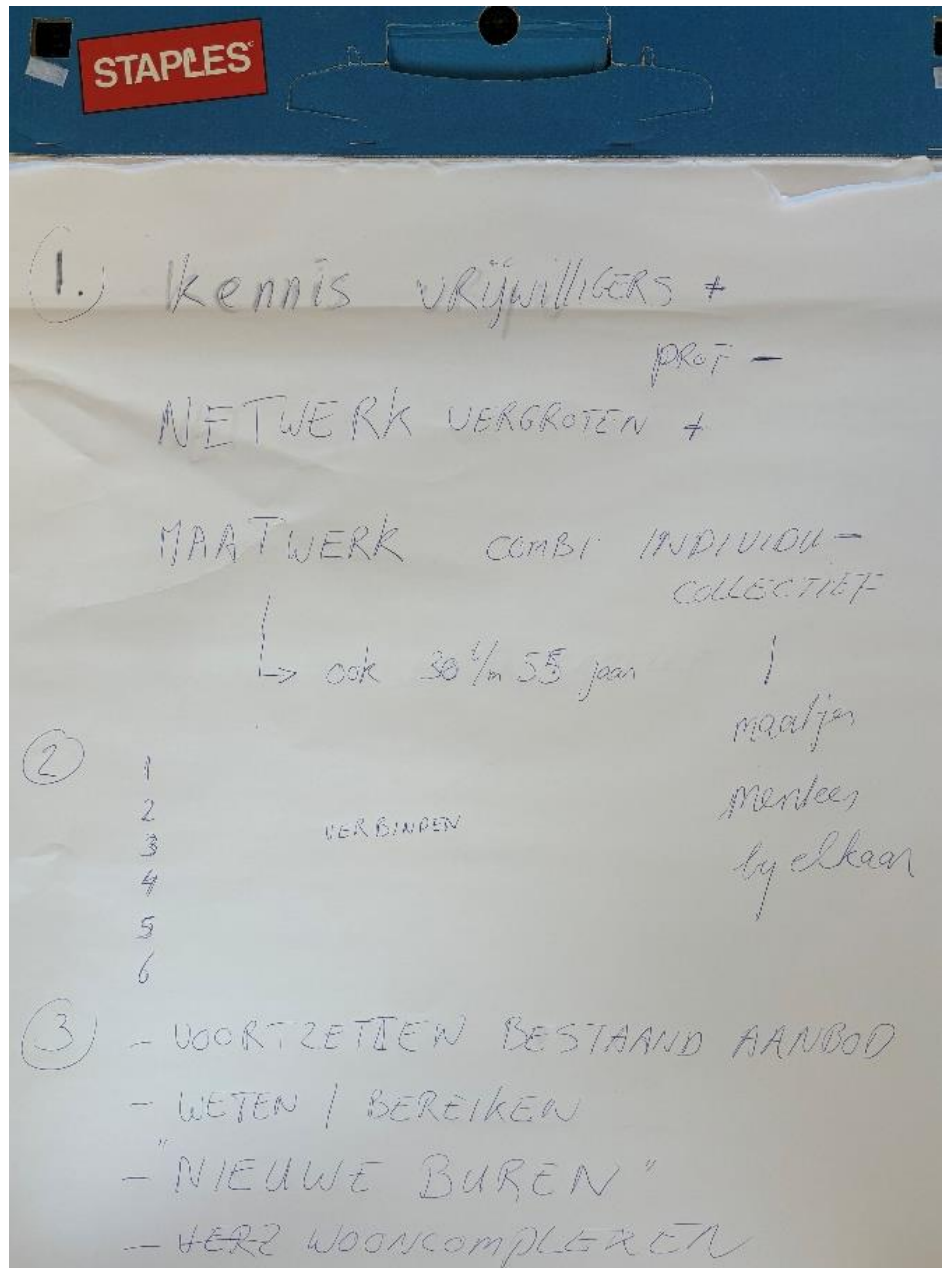 STAPLES
1. Kennis vrijwilligers +
prof -
NETWERK VERGROTEN +
MAATWERK COMBI INDIVIDU -
COLLECTIEF
↳ ook 30 t/m 55 jaar
maatjes
mentees
by elkaar
2
1
2
3 VERBINDEN
4
5
6
3 - VOORTZETTEN BESTAAND AANBOD
- WETEN / BEREIKEN
- "NIEUWE BUREN"
- WOONCOMPLEXEN